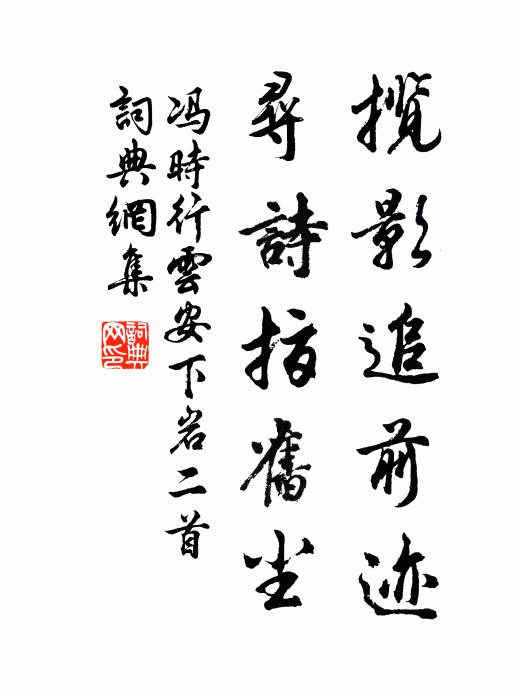 攬影追前迹
尋詩指舊坐
冯時行雲安下岩二首
詞典網集
詞典網印